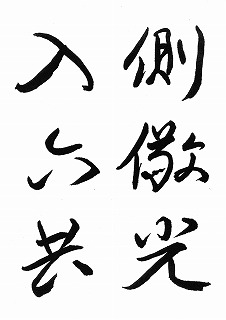 側儆光
入六共